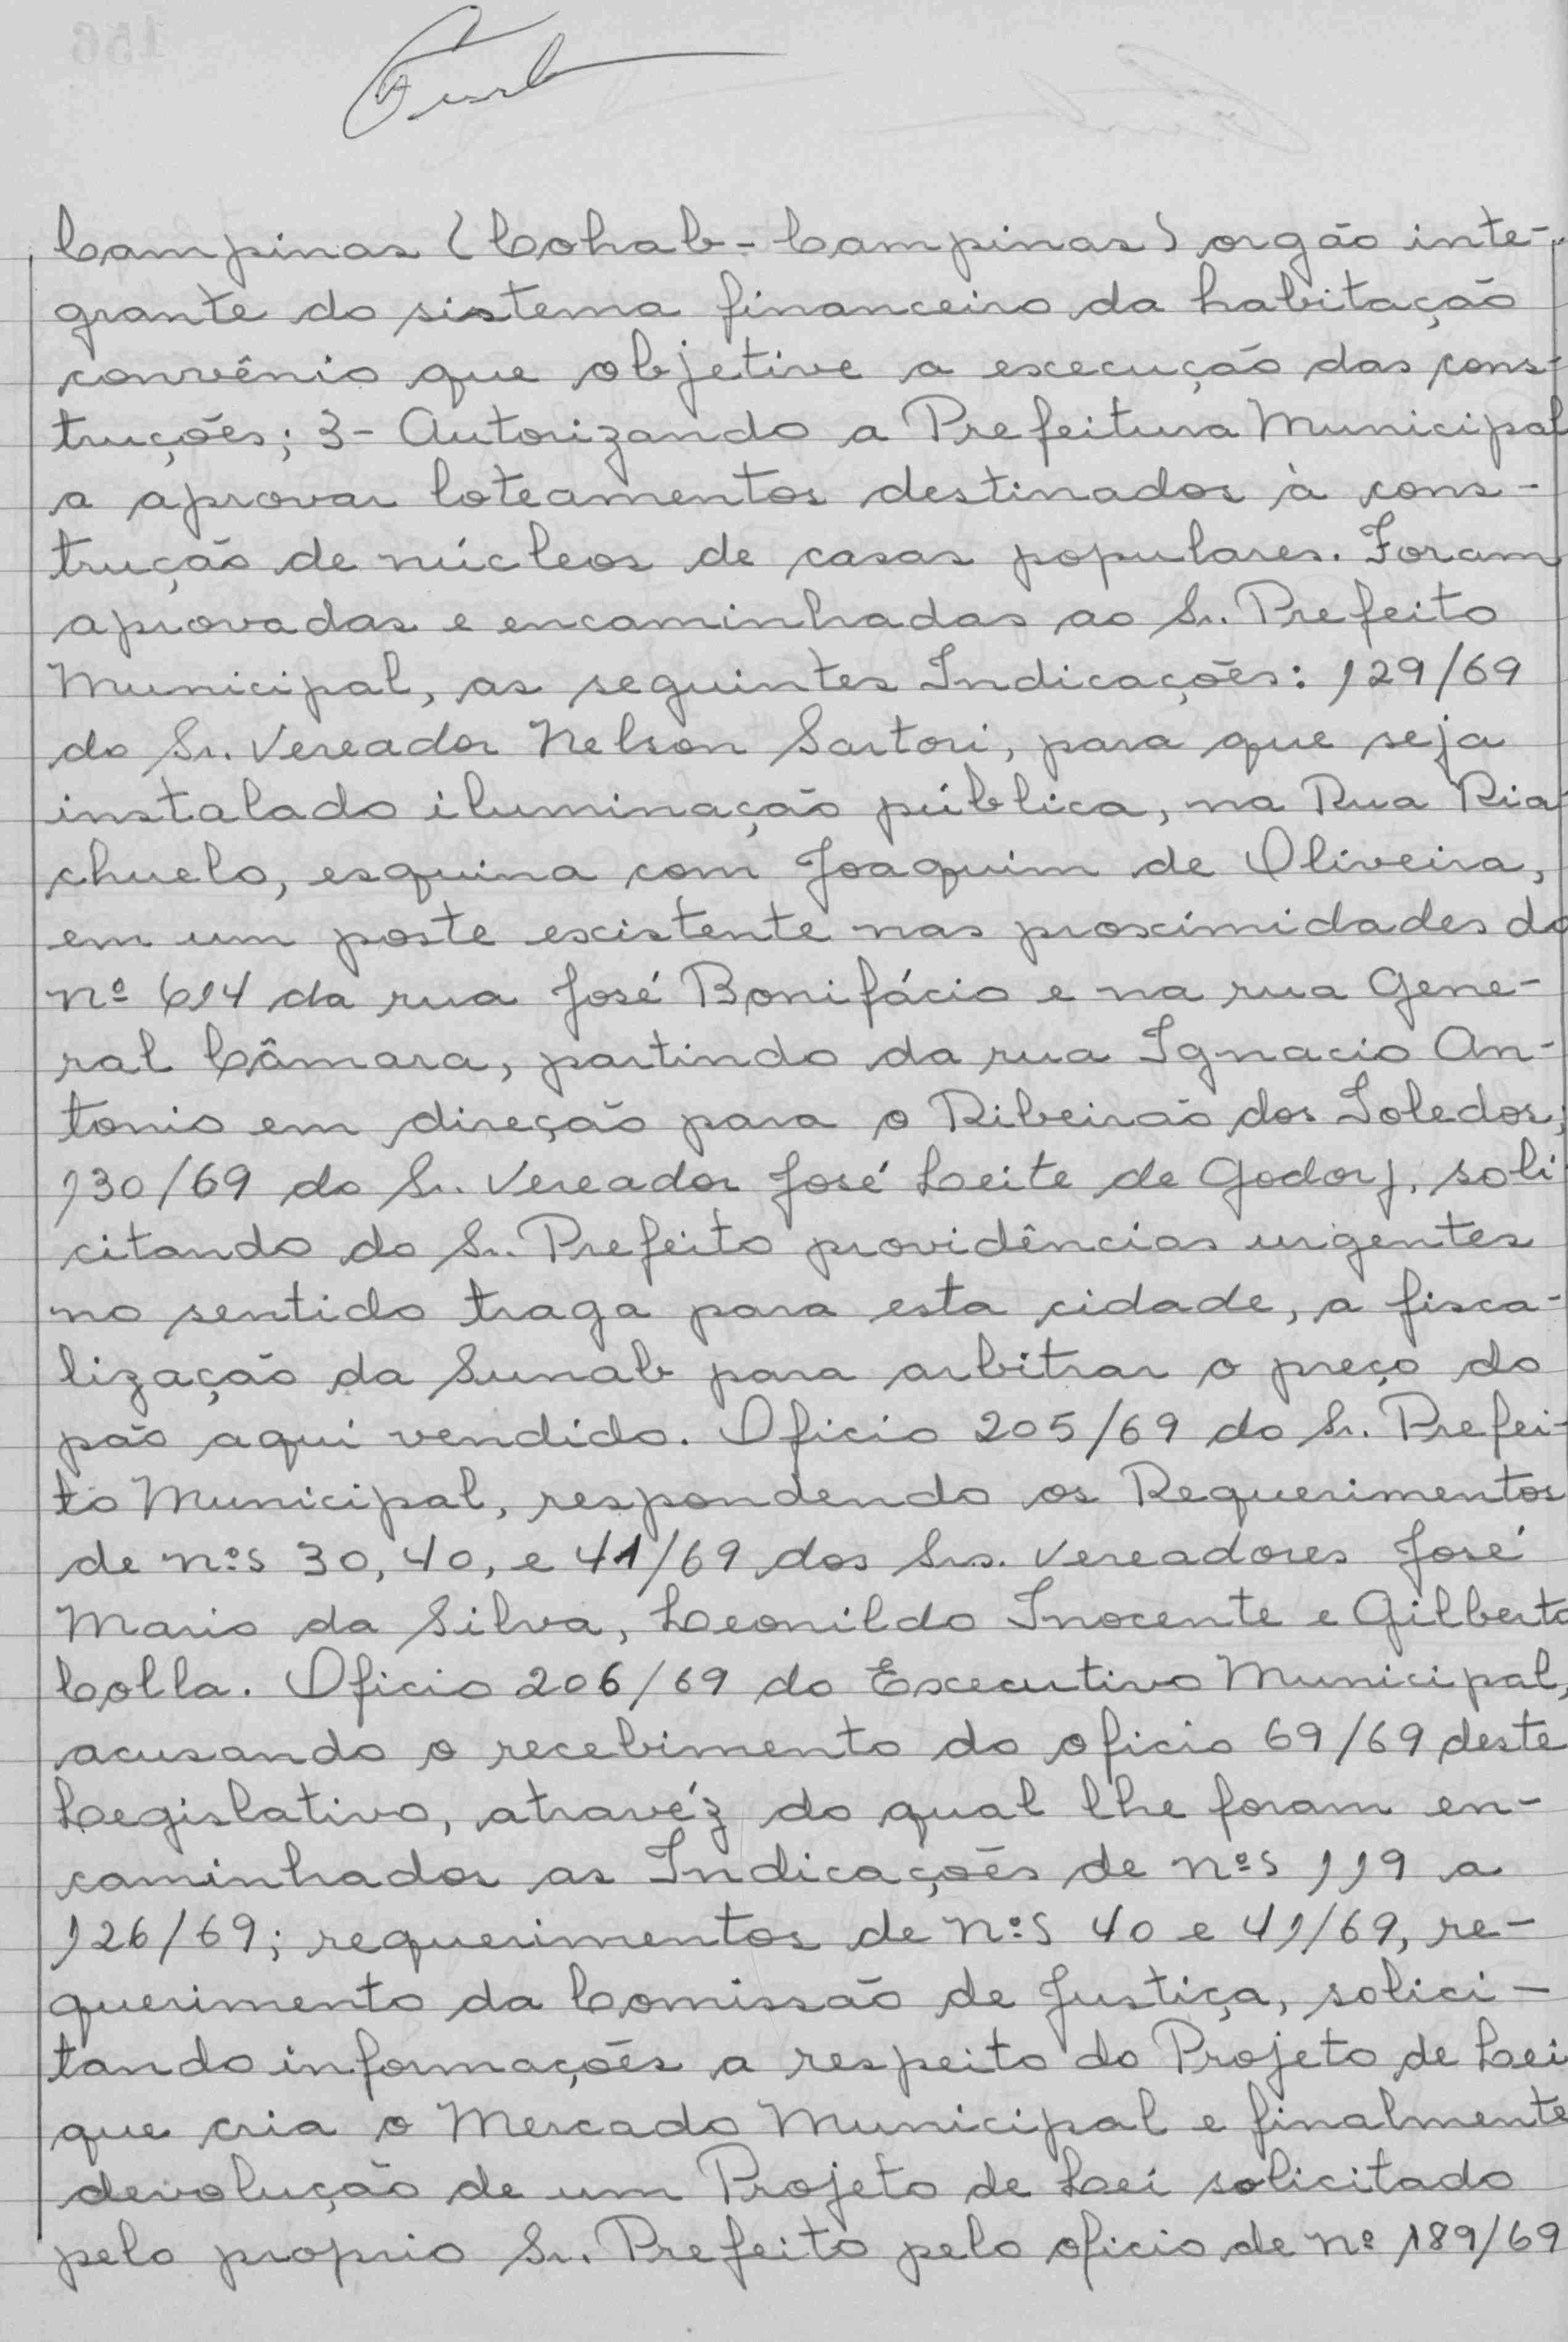 Campinas (Cohab-Campinas) orgão inte-
grante do sistema financeiro da habitação
convênio que objetive a execução das cons-
truções; 3- Autorizando a Prefeitura Municipal
a aprovar loteamentos destinados à cons-
trução de núcleos de casas populares. Foram
aprovadas e encaminhadas ao Sr. Prefeito
Municipal, as seguintes Indicações: 129/69
do Sr. Vereador Nelson Sartori, para que seja
instalado iluminação pública, na Rua Ria-
chuelo, esquina com Joaquim de Oliveira,
em um poste existente nas proximidades do
nº 614 da rua José Bonifácio e na rua Gene-
ral Câmara, partindo da rua Ignacio An-
tonio em direção para o Ribeirão dos Toledos;
130/69 do Sr. Vereador José Leite de Godoy, soli
citando do Sr. Prefeito providências urgentes
no sentido traga para esta cidade, a fisca-
lização da Sunab para arbitrar o preço do
pão aqui vendido. Oficio 205/69 do Sr. Prefei-
to Municipal, respondendo os Requerimentos
de nºs 30, 40, e 41/69 dos Srs. Vereadores José
Maria da Silva, Leonildo Inocente e Gilberto
Colla. Oficio 206/69 do Executivo Municipal,
acusando o recebimento do oficio 69/69 deste
Legislativo, atravéz do qual lhe foram en-
caminhados as Indicações de nºs 119 a
126/69; requerimentos de nºs 40 e 41/69, re-
querimento da Comissão de Justiça, solici-
tando informações a respeito do Projeto de Lei
que cria o Mercado Municipal e finalmente
devolução de um Projeto de Lei solicitado
pelo proprio Sr. Prefeito pelo oficio de nº 189/69